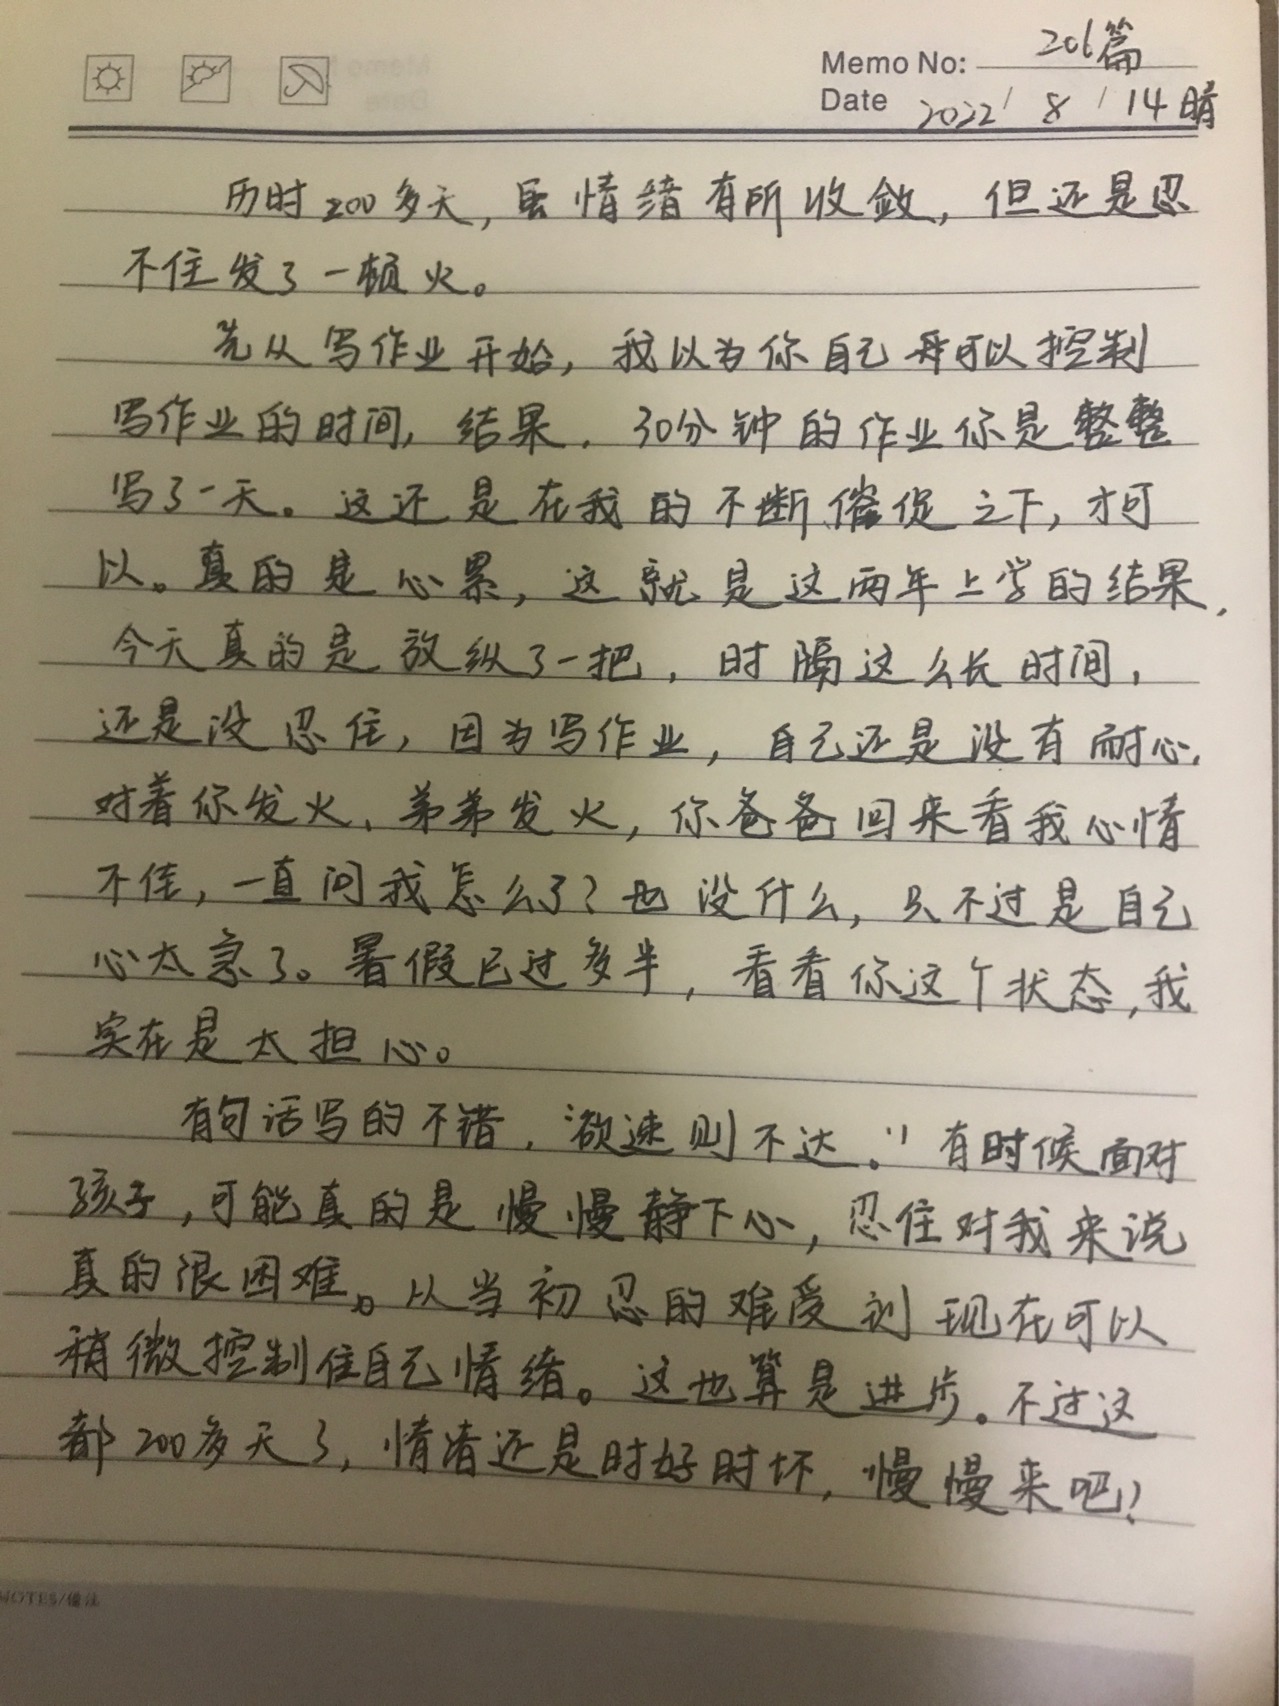 Memo No: 206篇
Date 2022 / 8 / 14 晴
历时200多天，虽情绪有所收敛，但还是忍
不住发了一顿火。
先从写作业开始，我以为你自己可以控制
写作业的时间，结果，30分钟的作业你是整整
写了一天。这还是在我的不断催促之下，才可
以。真的是心累，这就是这两年上学的结果，
今天真的是放纵了一把，时隔这么长时间，
还是没忍住，因为写作业，自己还是没有耐心，
对着你发火、弟弟发火，你爸爸回来看我心情
不佳，一直问我怎么了？也没什么，只不过是自己
心太急了。暑假已过多半，看看你这个状态，我
实在是太担心。
有句话写的不错，“欲速则不达。”有时候面对
孩子，可能真的是慢慢静下心，忍住对我来说
真的很困难。从当初忍的难受到现在可以
稍微控制住自己情绪。这也算是进步。不过这
都200多天了，情绪还是时好时坏，慢慢来吧！
NOTES/备注